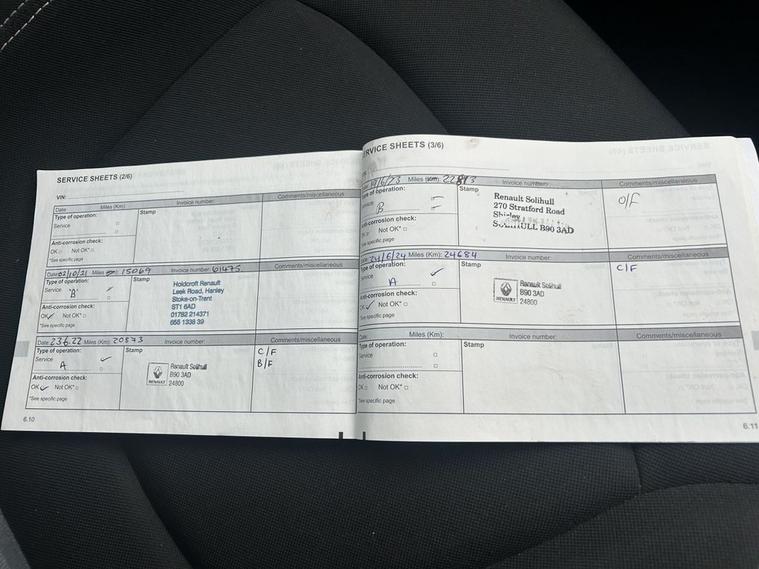 SERVICE SHEETS (2/6)
VIN:
Date: Miles (Km): Invoice number: Comments/miscellaneous
Type of operation: Stamp
Service
Anti-corrosion check:
OK Not OK*
*See specific page
Date: 02/10/21 Miles 15069 Invoice number: 61475 Comments/miscellaneous
Type of operation: Stamp
Service 'B'
Anti-corrosion check:
OK Not OK*
*See specific page
Holdcroft Renault
Leek Road, Hanley
Stoke-on-Trent
ST1 6AD
01782 214371
655 1338 39
Date: 23.6.22 Miles (Km): 20573 Invoice number: Comments/miscellaneous
Type of operation: Stamp
Service
A
Anti-corrosion check:
OK Not OK*
*See specific page
RENAULT
Renault Solihull
B90 3AD
24800
C/F
B/F
6.10
SERVICE SHEETS (3/6)
/6/23 Miles Invoice number: Comments/miscellaneous
pe of operation: Stamp
B
ti-corrosion check:
Not OK*
see specific page
Renault Solihull
270 Stratford Road
Shirley
SOLIHULL B90 3AD
O/F
24/6/24 Miles (Km): 24684 Invoice number: Comments/miscellaneous
ype of operation: Stamp
A
nti-corrosion check:
OK Not OK*
*See specific page
RENAULT
Renault Solihull
B90 3AD
24800
C/F
Miles (Km): Invoice number: Comments/miscellaneous
Type of operation: Stamp
Service
Anti-corrosion check:
OK Not OK*
*See specific page
6.11